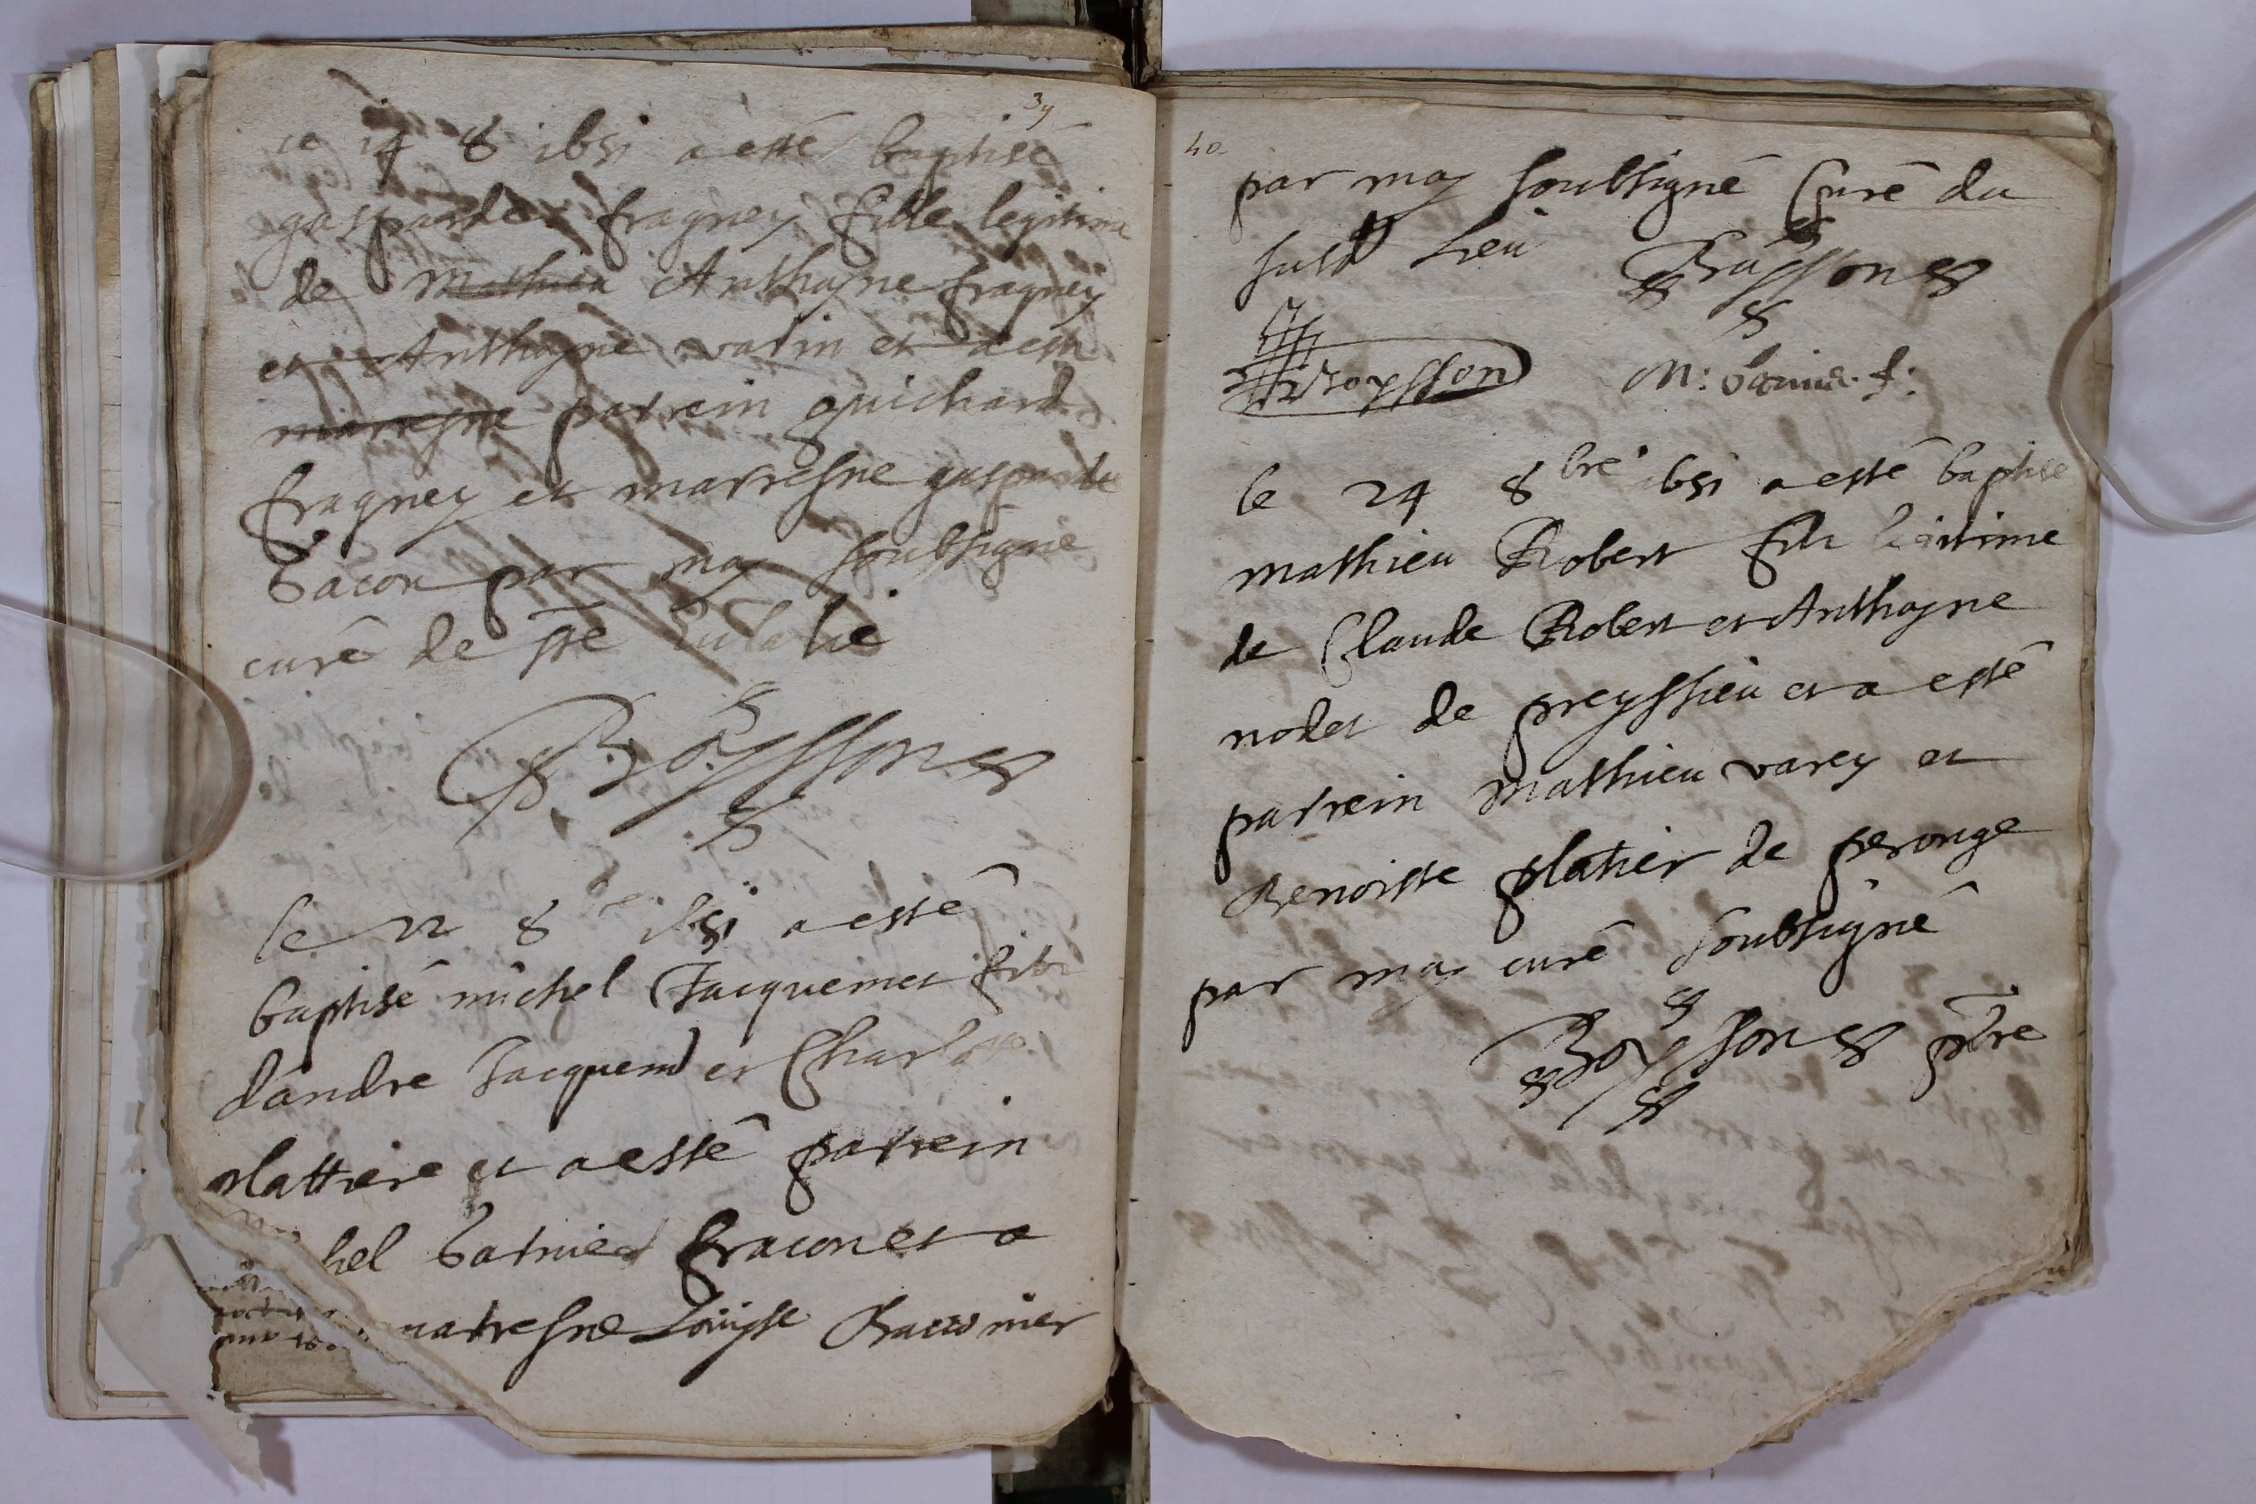 39
le 14 8 1651 a esté baptisé
gasparde fragney fille legitime
de Mathieu Anthoyne fragney
et Anthoyne vatin et a esté
marresne parrein guichard
fragney et marresne gasparde
Bacon par moy soubsigné
curé de ste Eulalie
Boysson
le 22 8bre 1651 a esté
baptisé michel Jacquemet filz
dandre Jacquemet et Charlotte
plattiere et a esté parrein
hel et a
marresne Louyse
40
par moy soubsigné Curé du
susd lieu Boysson
Boysson M:
le 24 8bre 1651 a esté baptisé
mathieu Robert filz legitime
de Claude Robert et Anthoyne
nodet de preyssieu et a esté
parrein mathieu varey et
Benoiste platier de peronge
par moy curé soubsigné
Boysson pbre